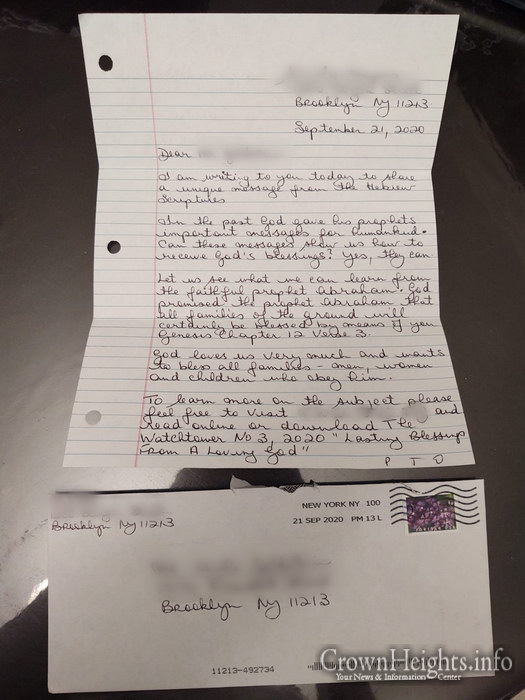 Brooklyn Ny 11213
September 21, 2020
Dear
I am writing to you today to share
a unique message from the Hebrew
Scriptures
In the past God gave his prophets
important messages for humankind.
Can these messages show us how to
receive God's blessings? Yes, they can
Let us see what we can learn from
the faithful prophet Abraham. God
promised the prophet Abraham that
all families of the ground will
certainly be blessed by means if you
Genesis Chapter 12 Verse 3.
God loves us very much and wants
to bless all families - men, women
and children who obey him.
To learn more on the subject please
feel free to visit and
read online or download The
Watchtower No 3, 2020 "Lasting Blessings
From A Loving God"
P T O
Brooklyn Ny 11213
NEW YORK NY 100
21 SEP 2020 PM 13 L
Brooklyn Ny 11213
11213-492734
CrownHeights.info
Your News & Information Center